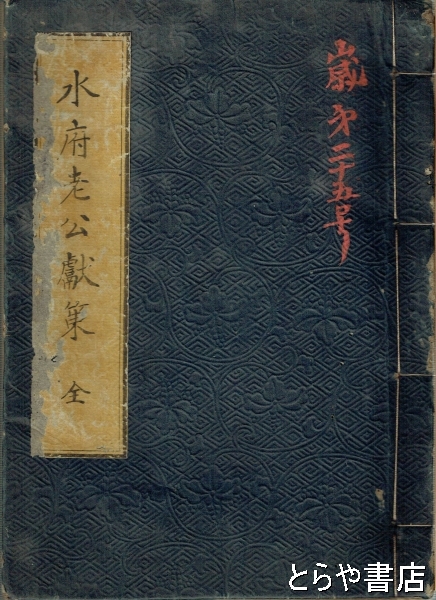 歳第二十五号
水府老公献策 全
とらや書店